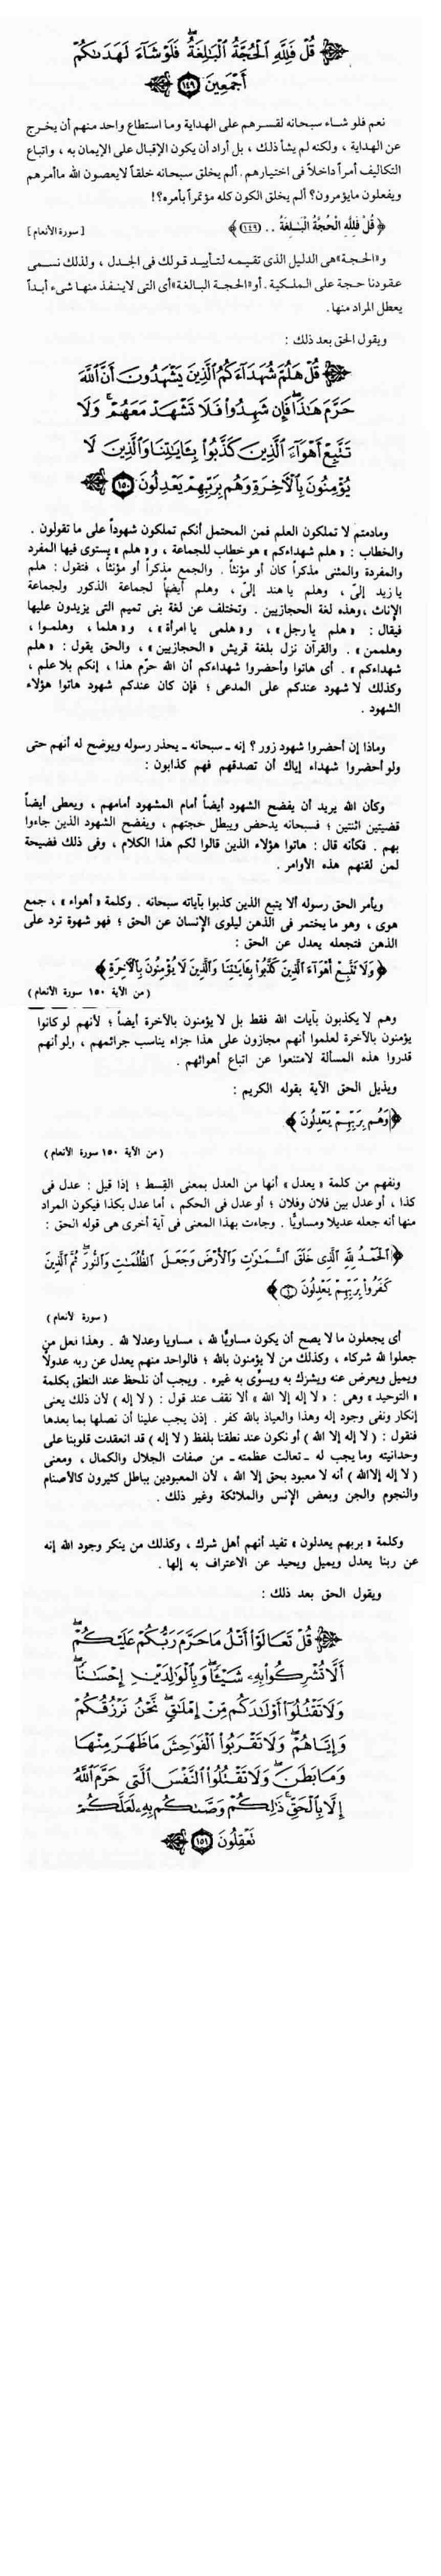 قُلْ فَلِلَّهِ الْحُجَّةُ الْبَالِغَةُ فَلَوْ شَاءَ لَهَدَاكُمْ
أَجْمَعِينَ ١٤٩
نعم فلو شاء سبحانه لقسرهم على الهداية وما استطاع واحد منهم أن يخرج
عن الهداية ، ولكنه لم يشأ ذلك ، بل أراد أن يكون الإقبال على الإيمان به ، واتباع
التكاليف أمراً داخلاً فى اختيارهم . ألم يخلق سبحانه خلقاً لايعصون الله ماأمرهم
ويفعلون مايؤمرون؟ ألم يخلق الكون كله مؤتمراً بأمره؟!
﴿ قُلْ فَلِلَّهِ الْحُجَّةُ الْبَالِغَةُ .. (١٤٩) ﴾ [ سورة الأنعام ]
و«الحجة» هى الدليل الذى تقيمه لتأييد قولك فى الجدل ، ولذلك نسمى
عقودنا حجة على الملكية . أو«الحجة البالغة» أى التى لاينفذ منها شىء أبداً
يعطل المراد منها .
ويقول الحق بعد ذلك :
قُلْ هَلُمَّ شُهَدَاءَكُمُ الَّذِينَ يَشْهَدُونَ أَنَّ اللَّهَ
حَرَّمَ هَٰذَا فَإِن شَهِدُوا فَلَا تَشْهَدْ مَعَهُمْ وَلَا
تَتَّبِعْ أَهْوَاءَ الَّذِينَ كَذَّبُوا بِآيَاتِنَا وَالَّذِينَ لَا
يُؤْمِنُونَ بِالْآخِرَةِ وَهُم بِرَبِّهِمْ يَعْدِلُونَ ١٥٠
ومادمتم لا تملكون العلم فمن المحتمل أنكم تملكون شهوداً على ما تقولون .
والخطاب : « هلم شهداءكم » هو خطاب للجماعة ، و« هلم » يستوى فيها المفرد
والمفردة والمثنى مذكراً كان أو مؤنثاً . والجمع مذكراً أو مؤنثاً ، فنقول : هلم
يا زيد إلىّ ، وهلم يا هند إلىّ ، وهلم أيضاً لجماعة الذكور ولجماعة
الإناث ، وهذه لغة الحجازيين . وتختلف عن لغة بنى تميم التى يزيدون عليها
فيقال : « هلم يا رجل » ، و« هلمى يا امرأة » ، و« هلما ، وهلموا ،
وهلممن » . والقرآن نزل بلغة قريش « الحجازيين » ، والحق يقول : « هلم
شهداءكم » . أى هاتوا وأحضروا شهداءكم أن الله حرّم هذا ، إنكم بلا علم ،
وكذلك لا شهود عندكم على المدعى ؛ فإن كان عندكم شهود هاتوا هؤلاء
الشهود .
وماذا إن أحضروا شهود زور ؟ إنه ـ سبحانه ـ يحذر رسوله ويوضح له أنهم حتى
ولو أحضروا شهداء إياك أن تصدقهم فهم كذابون :
وكأن الله يريد أن يفضح الشهود أيضاً أمام المشهود أمامهم ، ويعطى أيضاً
قضيتين اثنتين ؛ فسبحانه يدحض ويبطل حجتهم ، ويفضح الشهود الذين جاءوا
بهم . فكأنه قال : هاتوا هؤلاء الذين قالوا لكم هذا الكلام ، وفى ذلك فضيحة
لمن لقنهم هذه الأوامر .
ويأمر الحق رسوله ألا يتبع الذين كذبوا بآياته سبحانه . وكلمة « أهواء » ، جمع
هوى ، وهو ما يختمر فى الذهن ليلوى الإنسان عن الحق ؛ فهو شهوة ترد على
الذهن فتجعله يعدل عن الحق :
﴿ وَلَا تَتَّبِعْ أَهْوَاءَ الَّذِينَ كَذَّبُوا بِآيَاتِنَا وَالَّذِينَ لَا يُؤْمِنُونَ بِالْآخِرَةِ ﴾
( من الآية ١٥٠ سورة الأنعام )
وهم لا يكذبون بآيات الله فقط بل لا يؤمنون بالآخرة أيضاً ؛ لأنهم لو كانوا
يؤمنون بالآخرة لعلموا أنهم مجازون على هذا جزاء يناسب جرائمهم ، ولو أنهم
قدروا هذه المسألة لامتنعوا عن اتباع أهوائهم .
ويذيل الحق الآية بقوله الكريم :
﴿ وَهُم بِرَبِّهِمْ يَعْدِلُونَ ﴾
( من الآية ١٥٠ سورة الأنعام )
ونفهم من كلمة « يعدل » أنها من العدل بمعنى القِسط ؛ إذا قيل : عدل فى
كذا ، أو عدل بين فلان وفلان ؛ أو عدل فى الحكم ، أما عدل بكذا فيكون المراد
منها أنه جعله عديلا ومساويًا . وجاءت بهذا المعنى فى آية أخرى هى قوله الحق :
﴿ الْحَمْدُ لِلَّهِ الَّذِي خَلَقَ السَّمَاوَاتِ وَالْأَرْضَ وَجَعَلَ الظُّلُمَاتِ وَالنُّورَ ثُمَّ الَّذِينَ
كَفَرُوا بِرَبِّهِمْ يَعْدِلُونَ ① ﴾
( سورة لأنعام )
أى يجعلون ما لا يصح أن يكون مساويًا لله ، مساويا وعدلا لله . وهذا فعل من
جعلوا لله شركاء ، وكذلك من لا يؤمنون بالله ؛ فالواحد منهم يعدل عن ربه عدولًا
ويميل ويعرض عنه ويشرك به ويسوّى به غيره . ويجب أن نلحظ عند النطق بكلمة
« التوحيد » وهى : « لا إله إلا الله » ألا نقف عند قول : ( لا إله ) لأن ذلك يعنى
إنكار ونفى وجود إله وهذا والعياذ بالله كفر . إذن يجب علينا أن نصلها بما بعدها
فنقول : ( لا إله إلا الله ) أو نكون عند نطقنا بلفظ ( لا إله ) قد انعقدت قلوبنا على
وحدانيته وما يجب له ـ تعالت عظمته ـ من صفات الجلال والكمال ، ومعنى
( لا إله إلاالله ) أنه لا معبود بحق إلا الله ، لأن المعبودين بباطل كثيرون كالأصنام
والنجوم والجن وبعض الإنس والملائكة وغير ذلك .
وكلمة « بربهم يعدلون » تفيد أنهم أهل شرك ، وكذلك من ينكر وجود الله إنه
عن ربنا يعدل ويميل ويحيد عن الاعتراف به إلها .
ويقول الحق بعد ذلك :
قُلْ تَعَالَوْا أَتْلُ مَا حَرَّمَ رَبُّكُمْ عَلَيْكُمْ
أَلَّا تُشْرِكُوا بِهِ شَيْئًا وَبِالْوَالِدَيْنِ إِحْسَانًا
وَلَا تَقْتُلُوا أَوْلَادَكُم مِّنْ إِمْلَاقٍ نَّحْنُ نَرْزُقُكُمْ
وَإِيَّاهُمْ وَلَا تَقْرَبُوا الْفَوَاحِشَ مَا ظَهَرَ مِنْهَا
وَمَا بَطَنَ وَلَا تَقْتُلُوا النَّفْسَ الَّتِي حَرَّمَ اللَّهُ
إِلَّا بِالْحَقِّ ذَٰلِكُمْ وَصَّاكُم بِهِ لَعَلَّكُمْ
تَعْقِلُونَ ١٥١